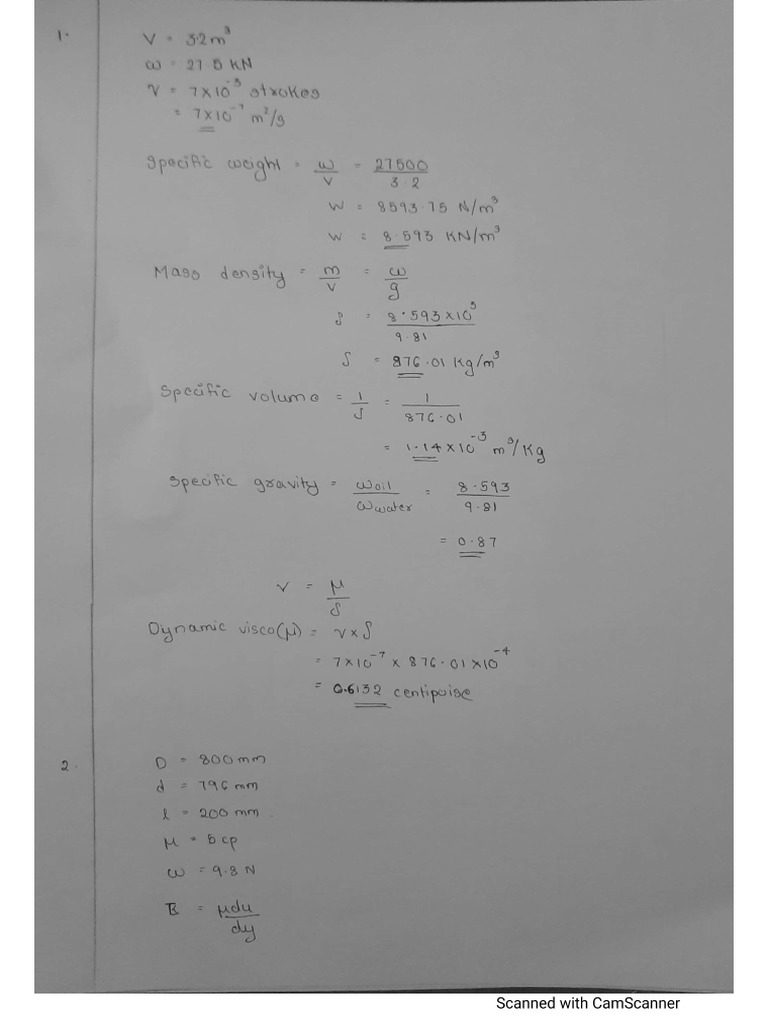 1.
V = 3.2m³
ω = 27.5 KN
ν = 7×10⁻³ strokes
= 7×10⁻⁷ m²/s
Specific weight = ω/V = 27500/3.2
W = 8593.75 N/m³
W = 8.593 KN/m³
Mass density = m/V = ω/g
ρ = 8.593×10³/9.81
ρ = 876.01 Kg/m³
Specific volume = 1/ρ = 1/876.01
= 1.14×10⁻³ m³/Kg
Specific gravity = ω oil/ω water = 8.593/9.81
= 0.87
ν = μ/ρ
Dynamic visco(μ) = ν×ρ
= 7×10⁻⁷ × 876.01×10⁻⁴
= 0.6132 centipoise
2.
D = 800mm
d = 796 mm
l = 200 mm
μ = 5 cp
ω = 9.8 N
= μdu/dy
Scanned with CamScanner